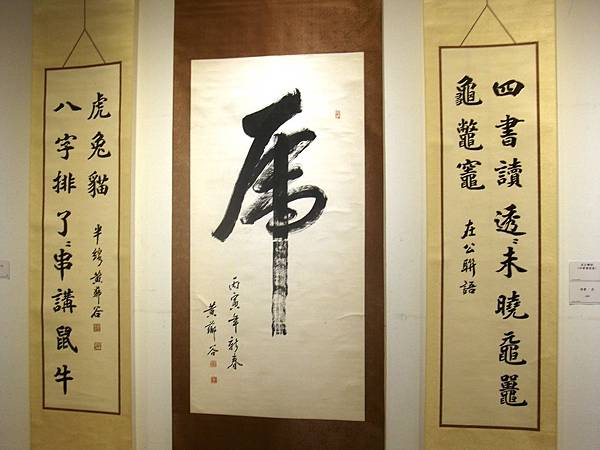 四書讀透〻未曉黿鼉
龜鼈竈
公聯語
虎
丙寅年新春
黃 谷
八字排了〻串講鼠牛
虎兔貓
半線黃 谷